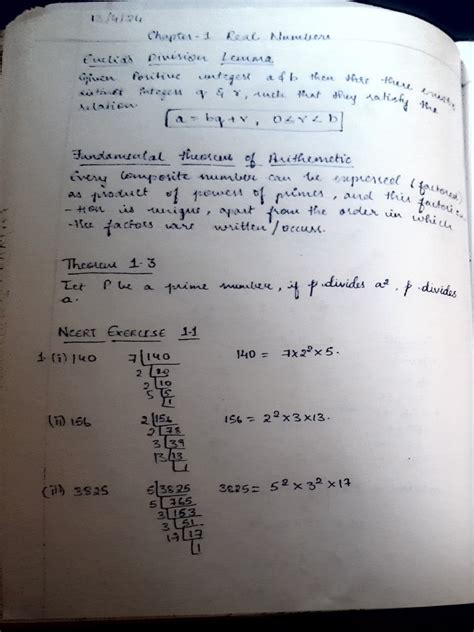 13/4/24
Chapter-1 Real Numbers
Euclid's Division Lemma
Given Positive integers a & b then there
integers q & r, such that they satisfy the
relation
a = bq+r, 0≤r<b
Fundamental Theorem of Arithmetic
Every Composite number can be expressed (factored)
as product of powers of primes, and this factoriza
-tion is unique, apart from the order in which
the factors are written/occurs.
Theorem 1.3
Let P be a prime number, if p divides a², p divides
a.
NCERT EXERCISE 1.1
1. (i) 140 7 140 140 = 7×2²×5.
2 20
2 10
5 5
1
(ii) 156 2 156 156 = 2²×3×13.
2 78
3 39
13 13
1
(iii) 3825 5 3825 3825 = 5²×3²×17
5 765
3 153
3 51
17 17
1